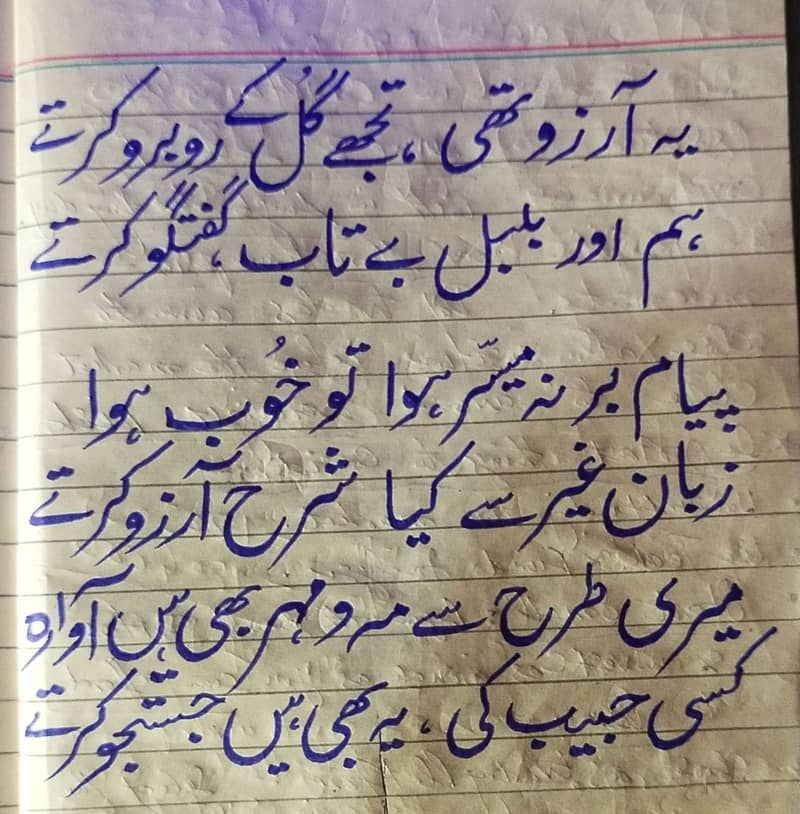 یہ آرزو تھی ، تجھے گُل کے روبرو کرتے
ہم اور بلبل بے تاب ، گفتگو کرتے
پیام بر نہ میسّر ہوا تو خُوب ہوا
زبان غیر سے کیا شرح آرزو کرتے
میری طرح سے مہ و مہر بھی ہیں آوارہ
کسی حبیب کی ، یہ بھی ہیں جستجو کرتے